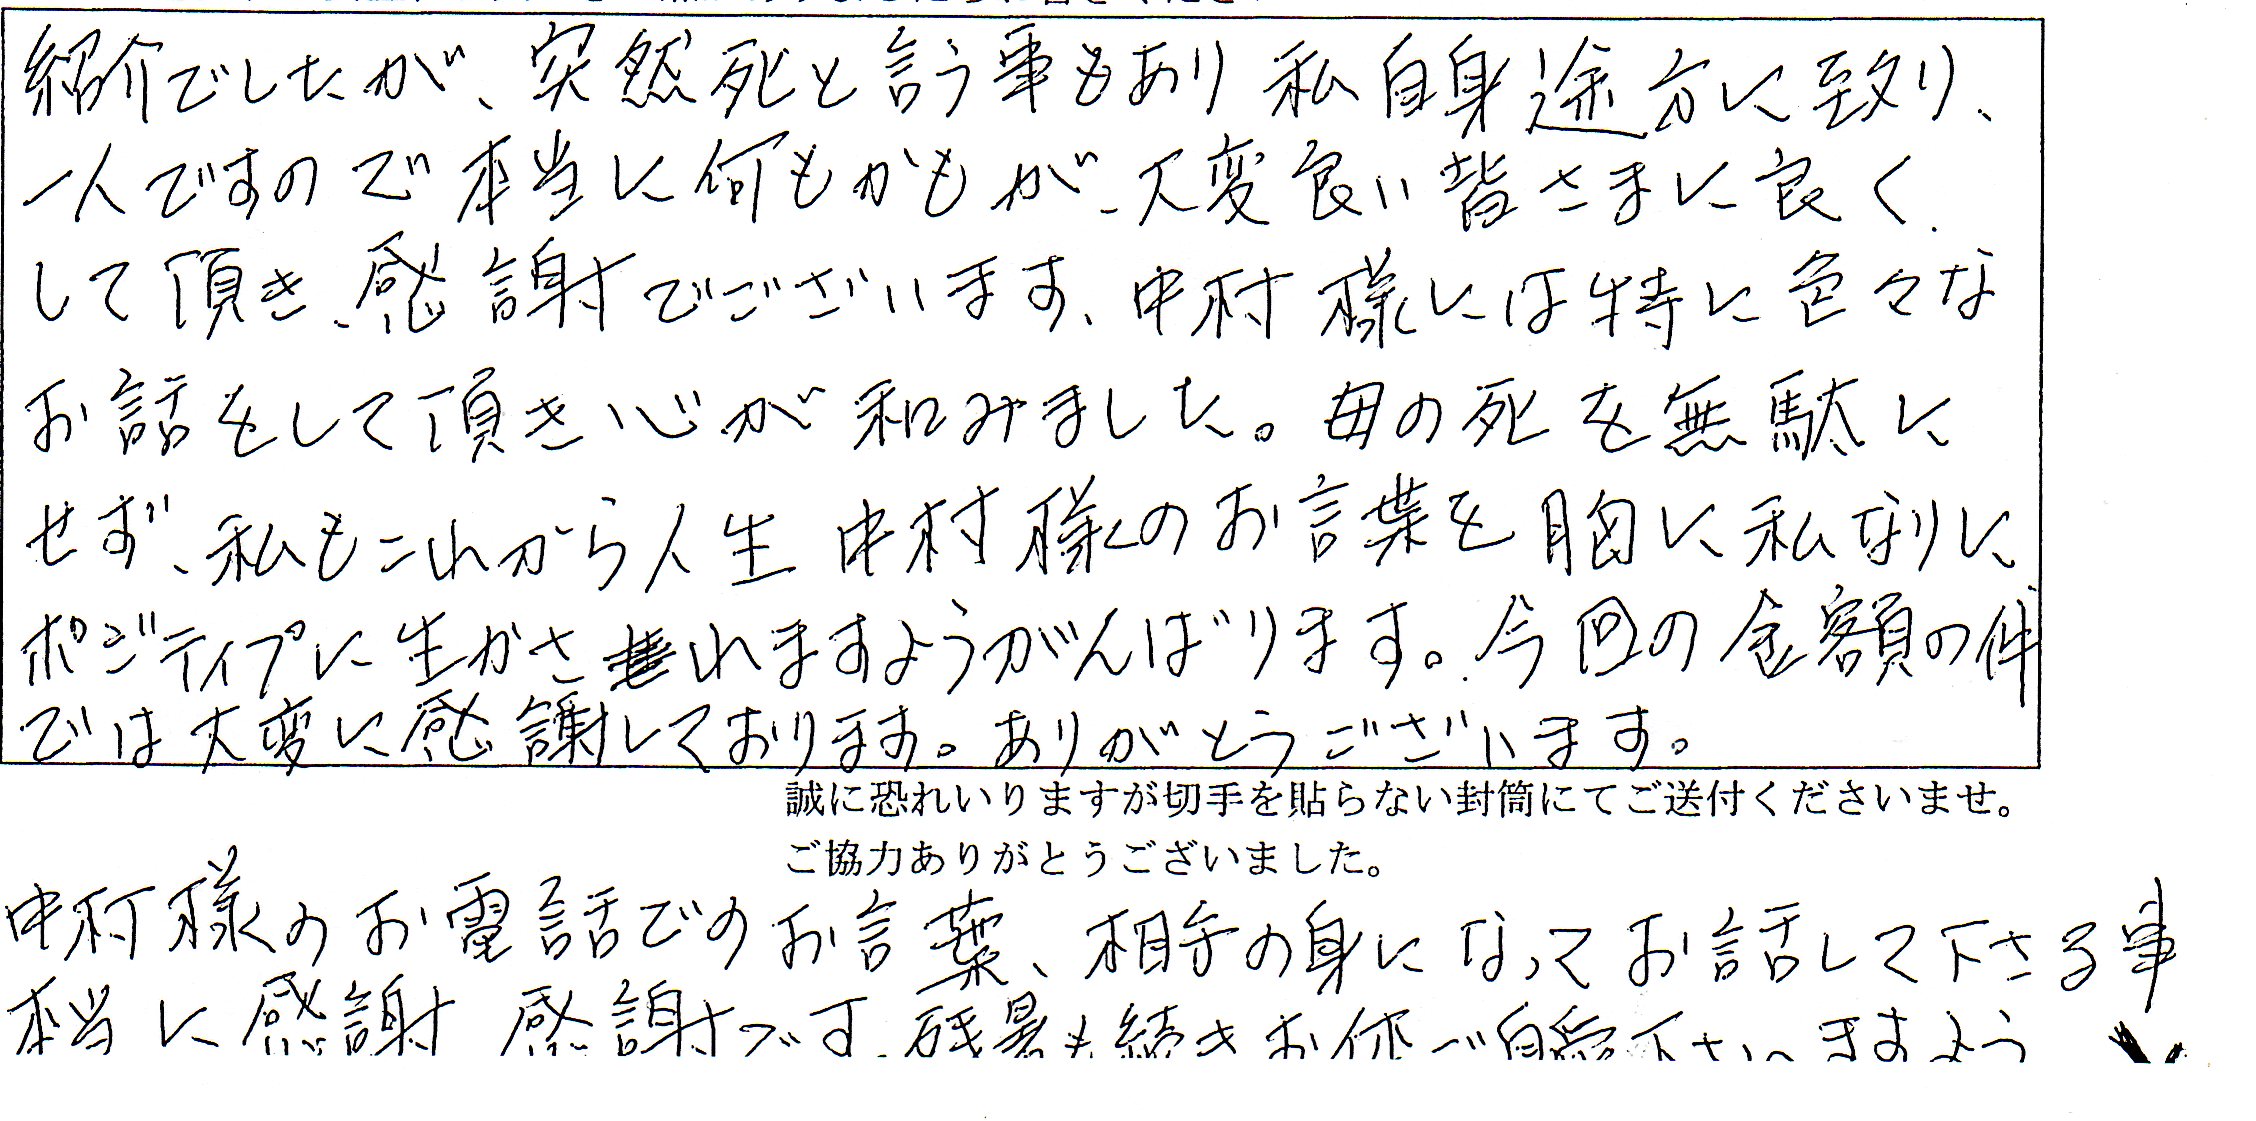 紹介でしたが、突然死と言う事もあり 私自身途方に至り、
一人ですので本当に何もかもが、大変良い皆さまに良く
して頂き、感謝でございます、中村様には特に色々な
お話をして頂き心が和みました。母の死を無駄に
せず、私もこれから人生 中村様のお言葉を胸に私なりに、
ポジティブに生かされますようがんばります。今回の金額の件
では大変に感謝しております。ありがとうございます。
誠に恐れいりますが切手を貼らない封筒にてご送付くださいませ。
ご協力ありがとうございました。
中村様のお電話でのお言葉、相手の身になってお話して下さる事
本当に感謝 感謝です、残暑も続きお体ご自愛下さいますよう